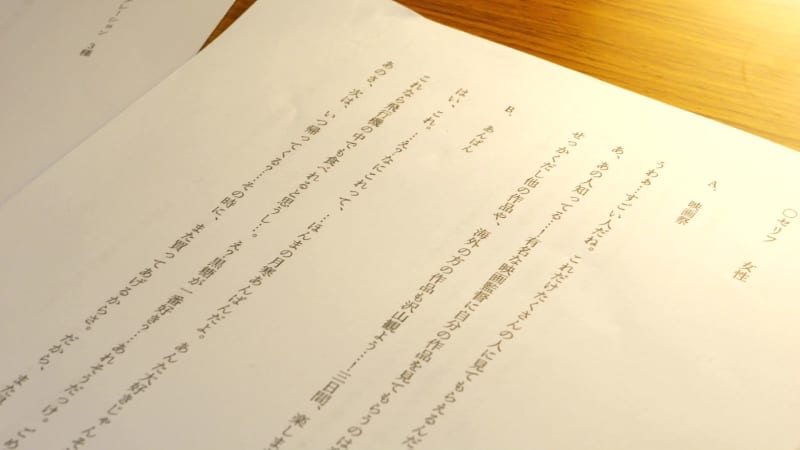 〇セリフ 女性
A、映画祭
うわぁ…すごい人だね。これだけたくさんの人に見てもらえるんだ
あ、あの人知ってる！有名な映画監督に自分の作品を見てもらうのは
せっかくだし他の作品や、海外の方の作品も沢山観よう…！三日間、楽しま
B、あんぱん
はい、これ。…えっなにこれって、…ほんまの月寒あんぱんだよ。あんた大好きじゃんそ
これなら飛行機の中でも食べれると思うし…。えっ黒糖が一番好き？…あれそうだっけ。ごめ
あのさ、次は、いつ帰ってくる？…その時に、また買ってあげるからさ。だから、また
レーション 3種